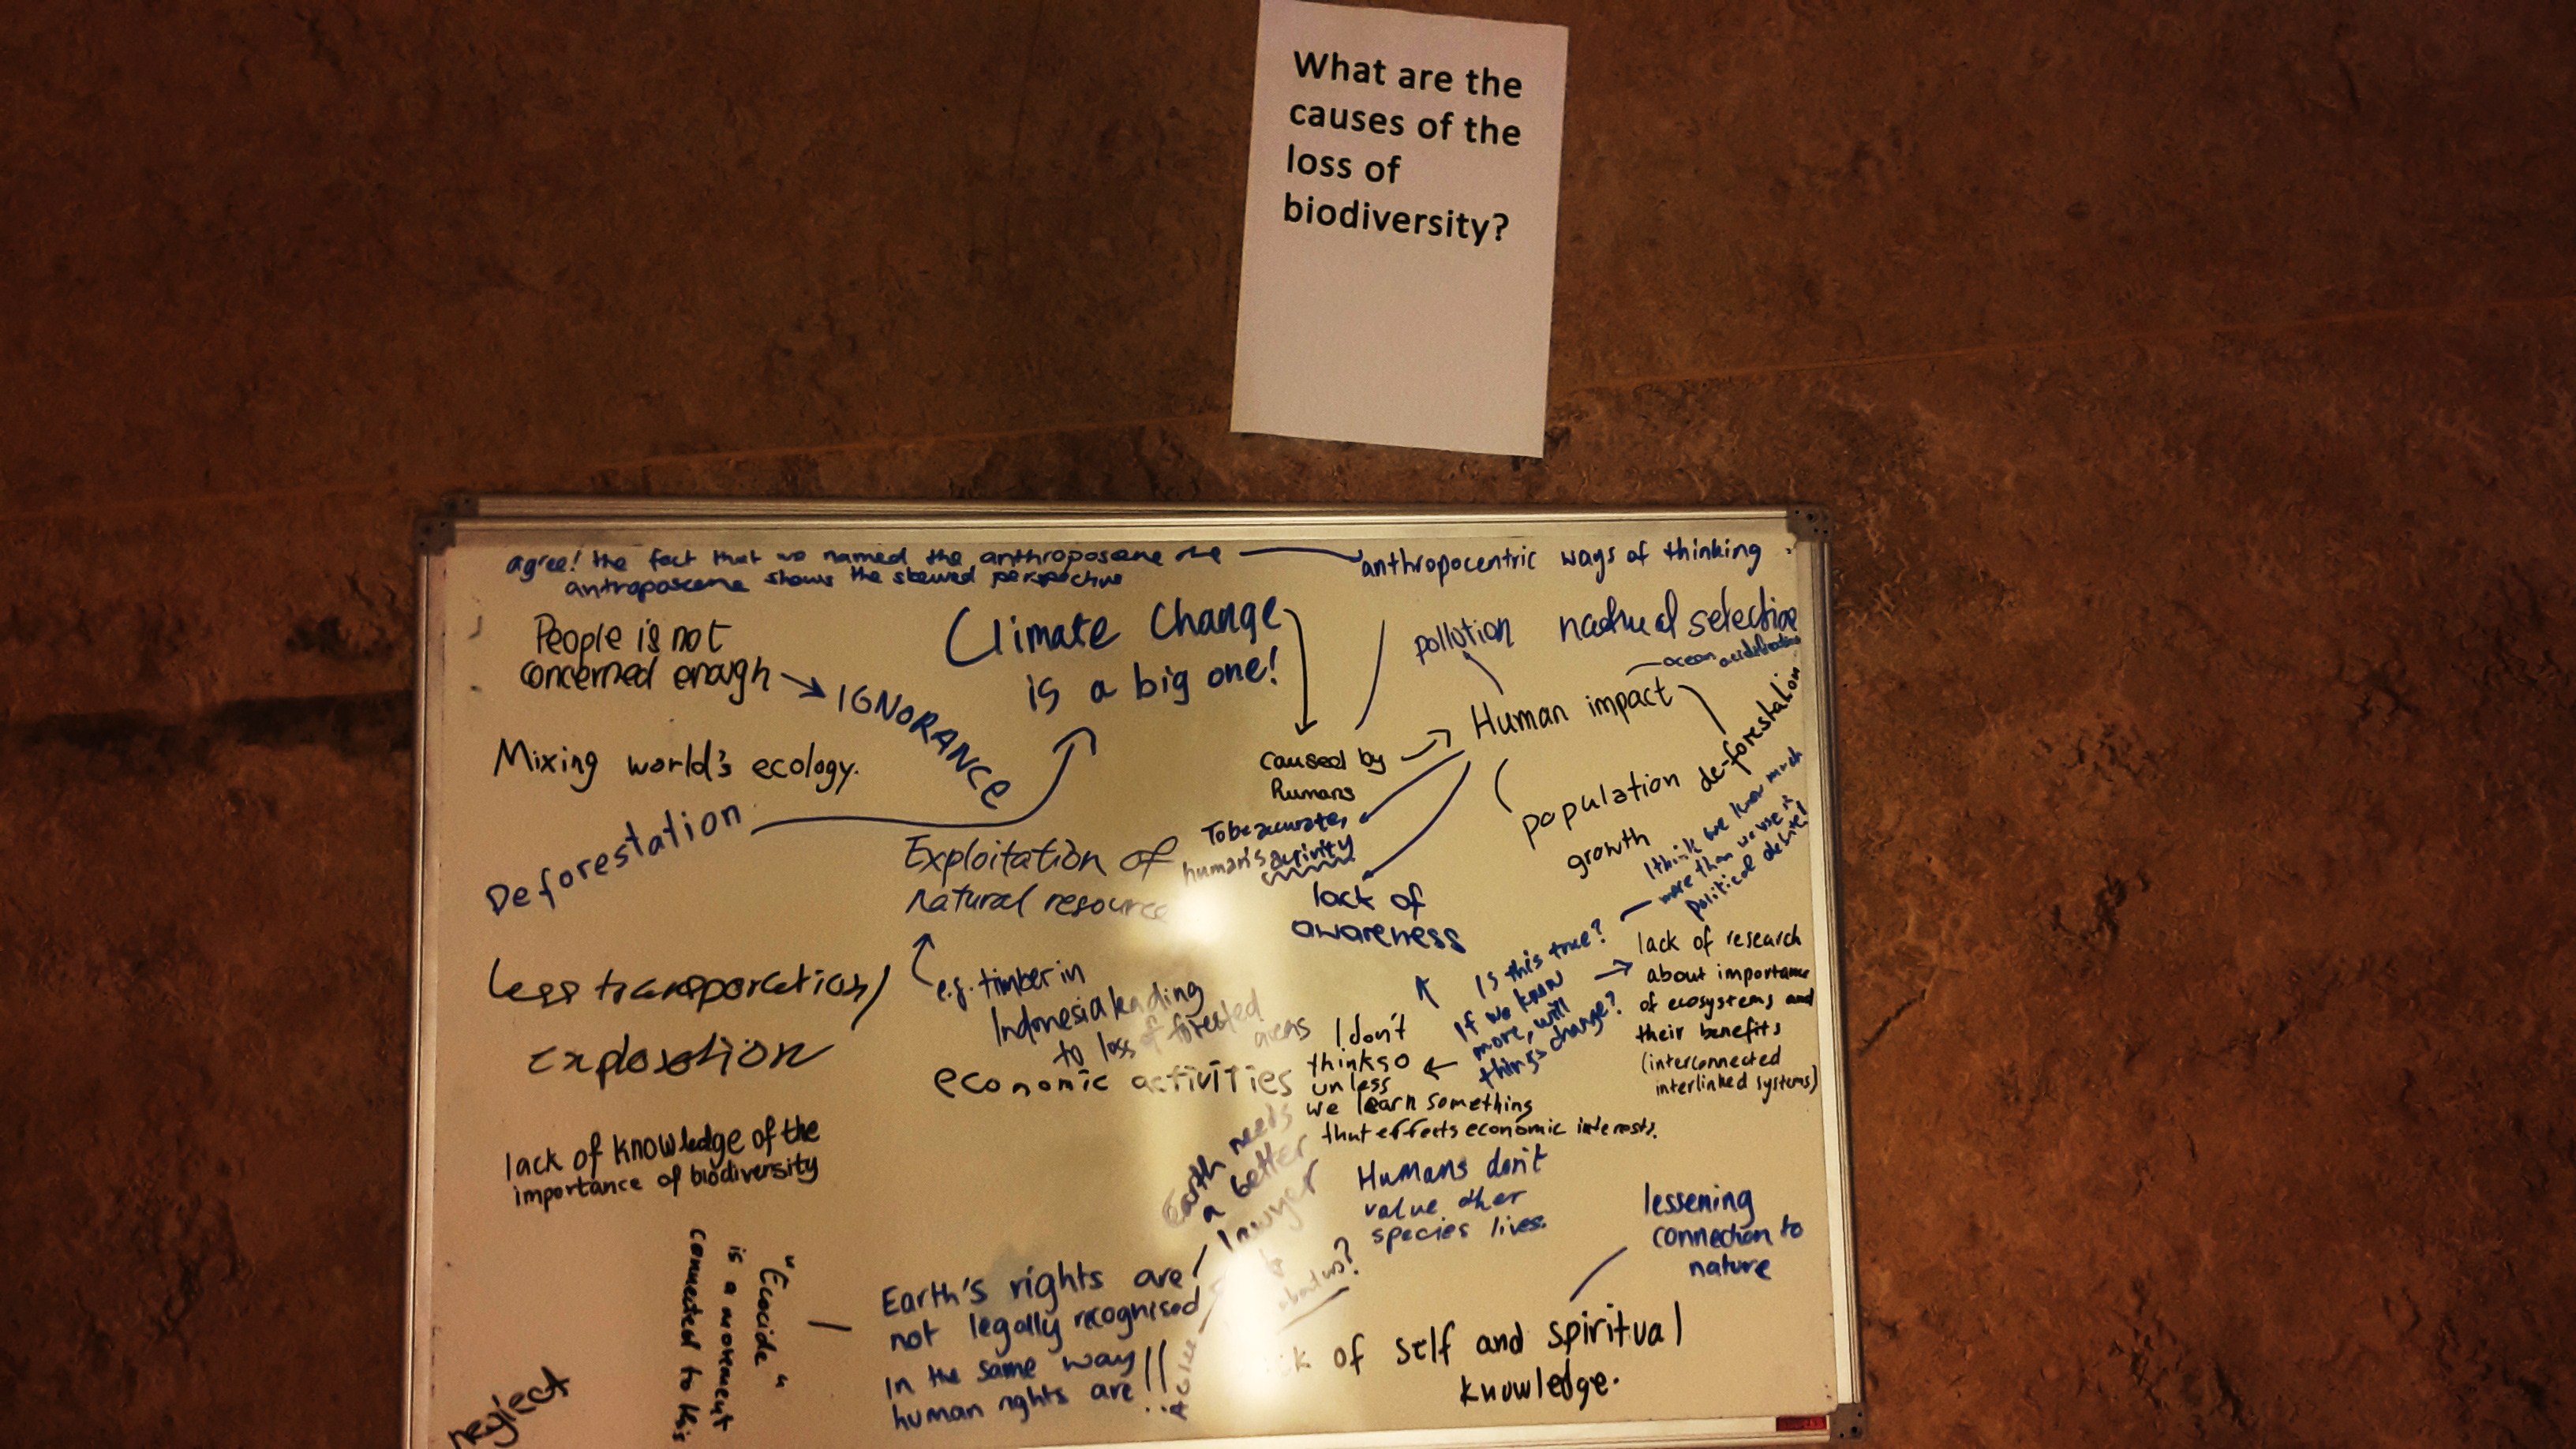 What are the
causes of the
loss of
biodiversity?
agree! the fact that we named the anthroposcene the
antroposcene shows the skewed perspective
anthropocentric ways of thinking
People is not
concerned enough
IGNORANCE
Climate Change
is a big one!
pollution
natural selection
ocean acidification
Human impact
de-forestation
population
growth
caused by
humans
To be accurate,
human's activity
lack of
awareness
Mixing world's ecology.
Deforestation
Exploitation of
natural resource
e.g. timber in
Indonesia leading
to loss of forested
areas
less transportation/
explosotion
economic activities
I think we know much
more than we use in
political debate!
Is this true?
If we know
more, will
things change?
lack of research
about importance
of ecosystems and
their benefits
(interconnected
interlinked systems)
I don't
think so
unless
we learn something
that effects economic interests.
lack of knowledge of the
importance of biodiversity
Earth needs
a better
lawyer
Humans don't
value other
species lives.
lessening
connection to
nature
"Ecocide"
is a movement
connected to this
Earth's rights are
not legally recognised
in the same way
human rights are
about us?
of self and spiritual
knowledge.
neglect